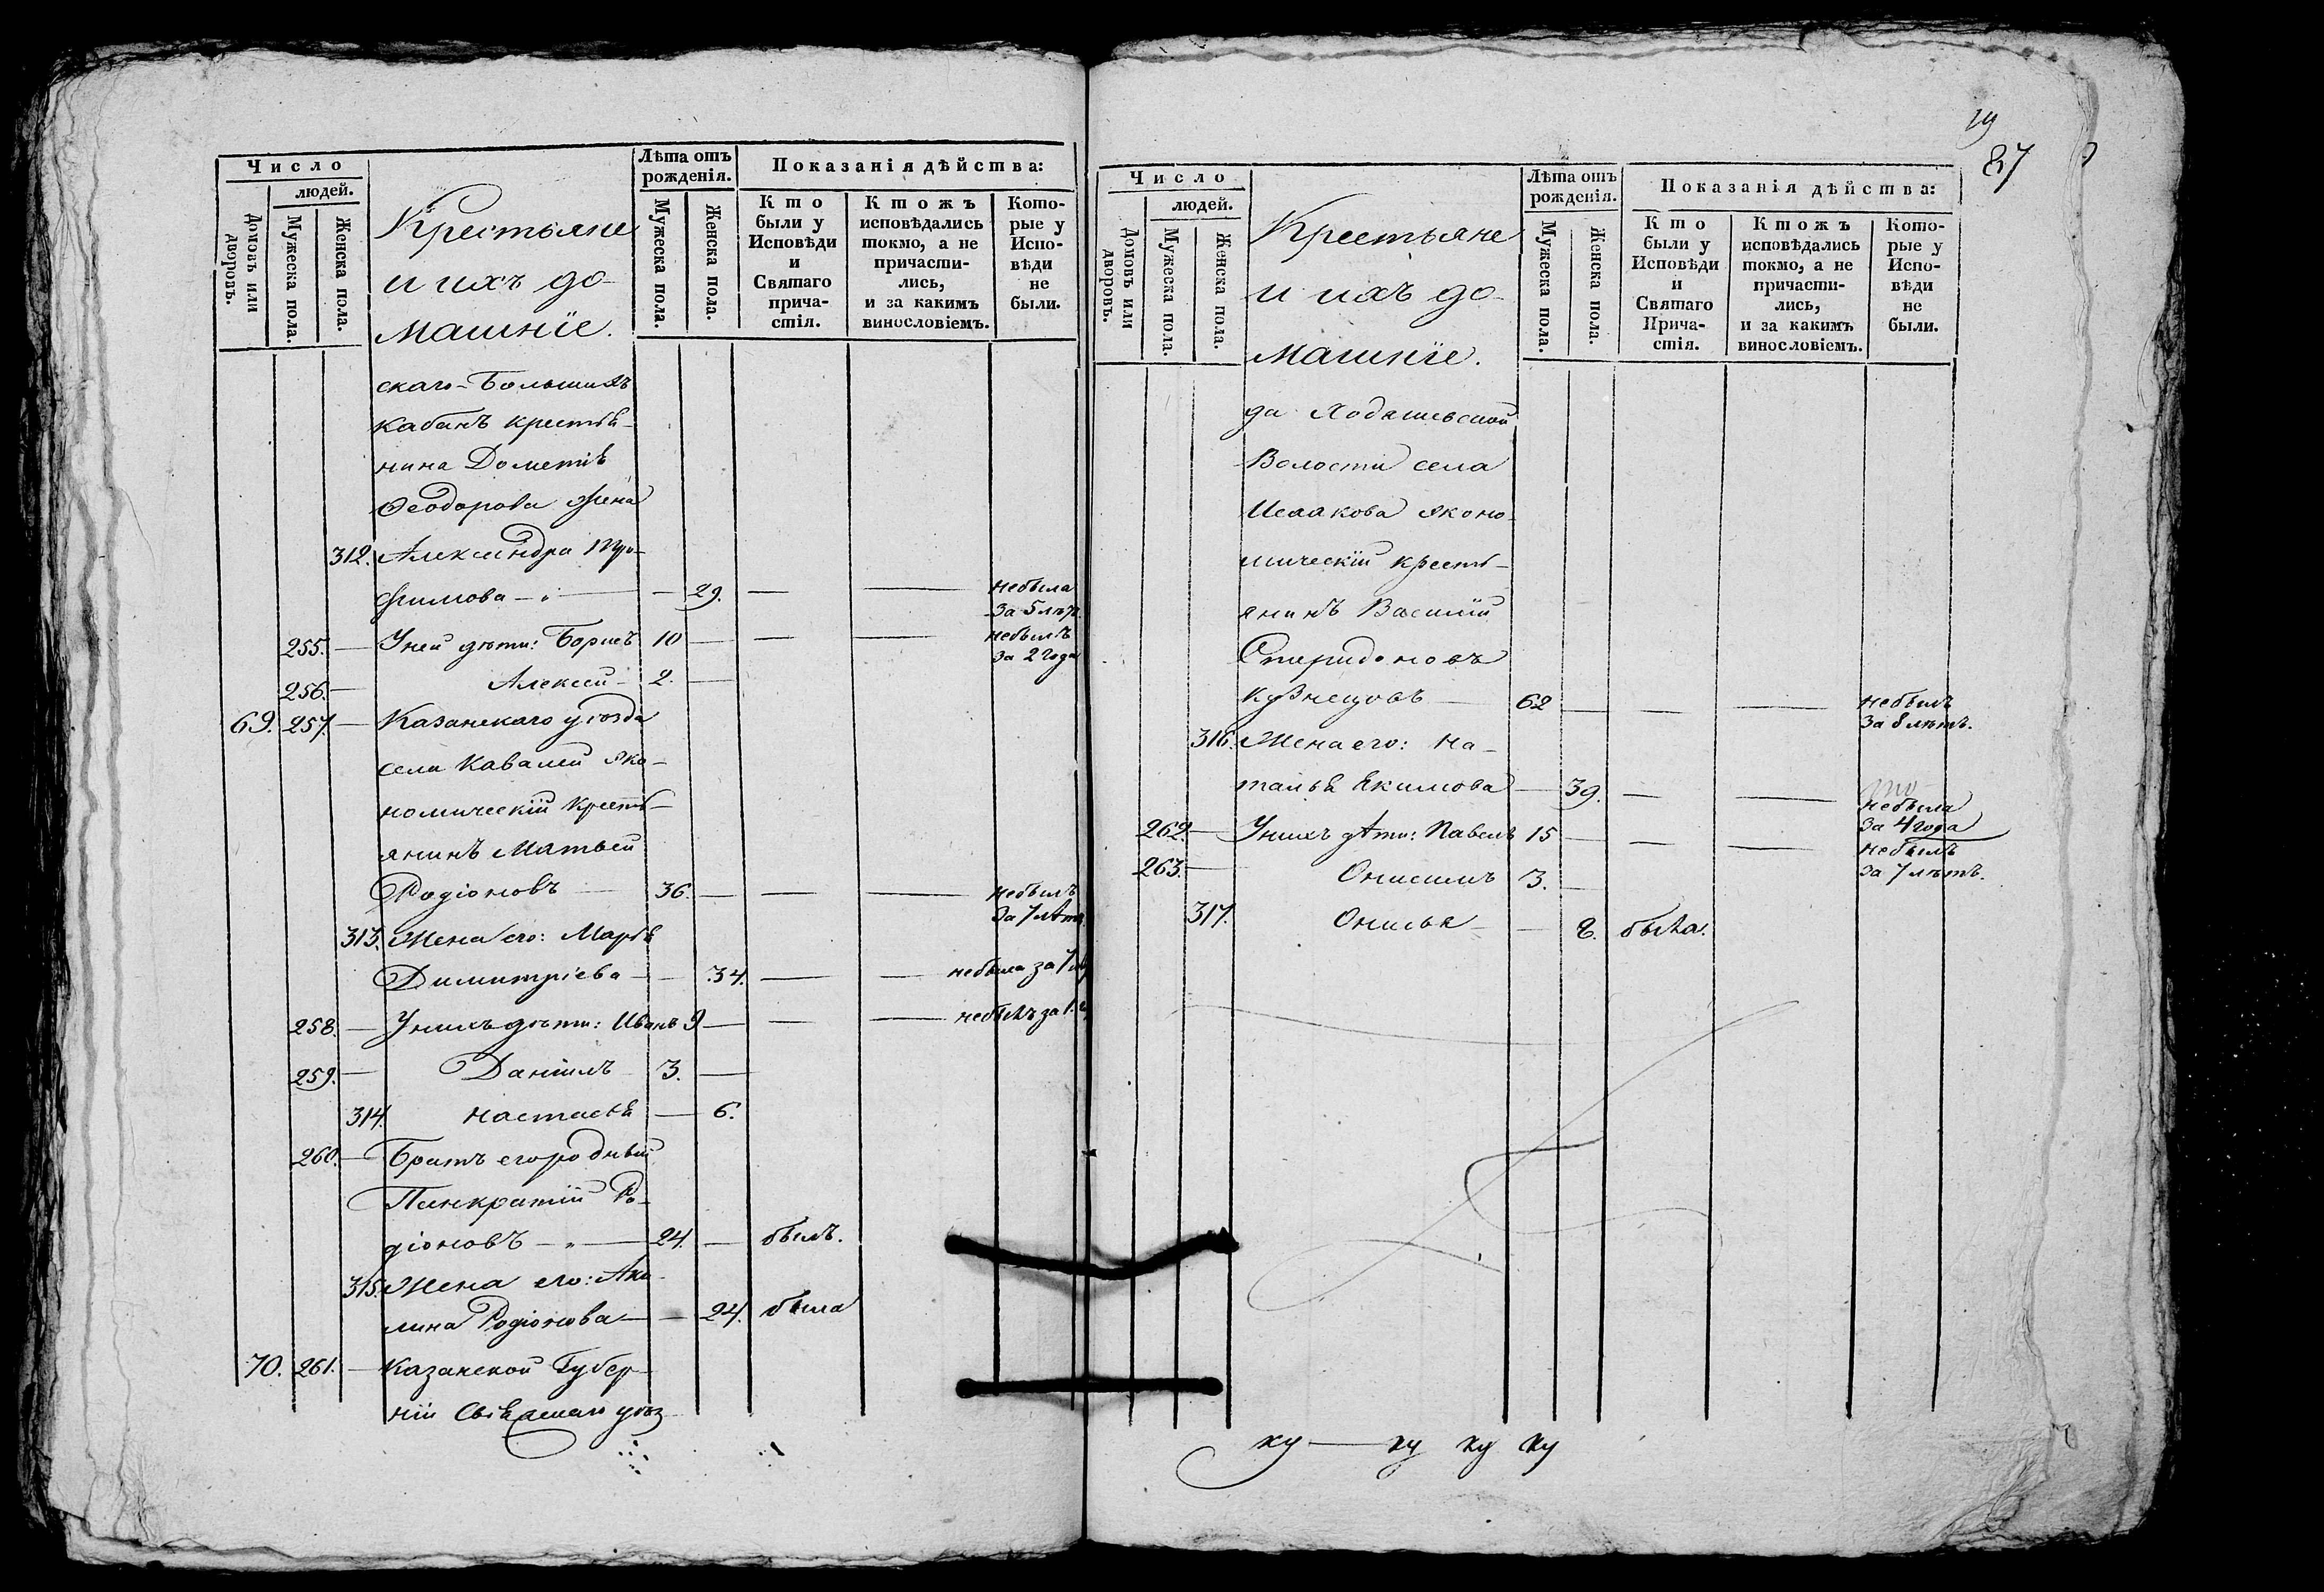 Число
людей.
Домовъ или дворовъ.
Мужеска пола.
Женска пола.
Крестьяне
и ихъ до-
машніе.
Лѣта отъ
рожденія.
Мужеска пола.
Женска пола.
Показанія дѣйства:
Кто
были у
Исповѣди
и
Святаго
прича-
стія.
Ктожъ
исповѣдались
токмо, а не
причасти-
лись,
и за какимъ
винословіемъ.
Кото-
рые у
Испо-
вѣди
не
были.
скаго-Большихъ
кабанъ крестья-
нина Дометія
Ѳеодорова жена
312. Александра Тро-
фимова — — 29. — — небыла
за 5 лѣтъ.
255. — У ней дѣти: Борисъ 10 — — — небылъ
за 2 года
256. — Алексей - 2. —
69. 257. — Казанскаго уѣзда
села Кавалей эко-
номическій кресть-
янинъ Матвей
Родіоновъ — 36. — — — небылъ
за 7 лѣтъ
313. Жена его: Марья
Димитріева — — 34. — — небыла за 7
258. — У нихъ дѣти: Иванъ 9 — — — небылъ за 1.
259. — Даніилъ 3. —
314. Настасья — 6.
260. — Братъ его родный
Панкратій Ро-
діоновъ — 24. — былъ.
315. Жена его: Аку-
лина Родіонова — — 24. была
70. 261. — Казанской Губер-
ніи Свіяжскаго уѣз
19
87
Число
людей.
Домовъ или дворовъ.
Мужеска пола.
Женска пола.
Крестьяне
и ихъ до-
машніе.
Лѣта отъ
рожденія.
Мужеска пола.
Женска пола.
Показанія дѣйства:
Кто
были у
Исповѣди
и
Святаго
Прича-
стія.
Ктожъ
исповѣдались
токмо, а не
причасти-
лись,
и за какимъ
винословіемъ.
Кото-
рые у
Испо-
вѣди
не
были.
да Ходяшевской
Волости села
Исаакова эконо-
мическій кресть-
янинъ Василій
Спиридоновъ
Кузнецовъ — 62 — — — небылъ
за 8 лѣтъ.
316. Жена его: На-
талья Екимова — 39. — — небыла
за 4 года
262. — У нихъ дѣти: Павелъ 15 — — — небылъ
за 7 лѣтъ.
263. — Онисимъ 3. —
317. Онисья — — 8. была.
ку — ку ку ку